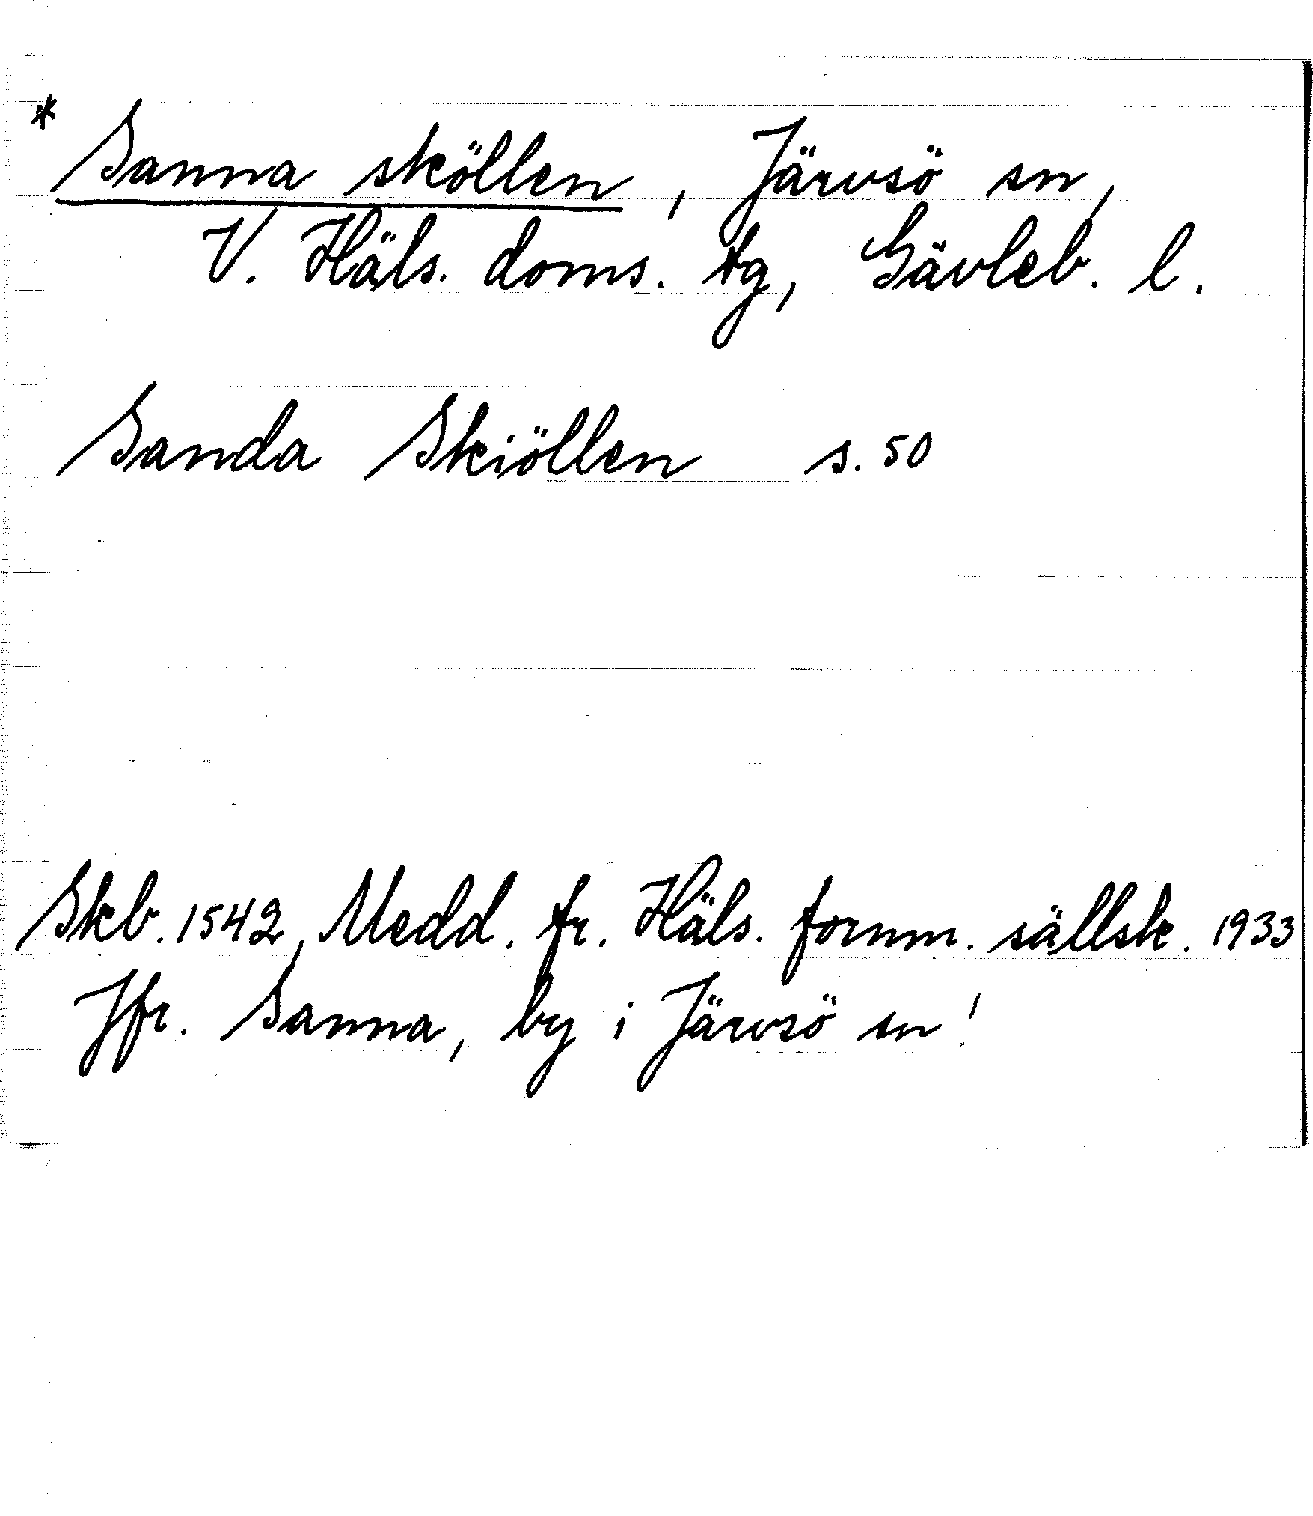 * Sanna sköllen, Järvsö sn,
V. Häls. doms. tg, Gävleb. l.
Sanda Skiöllen s. 50
Skb. 1542, Medd. fr. Häls. fornm. sällsk. 1933
Jfr. Sanna, by i Järvsö sn!